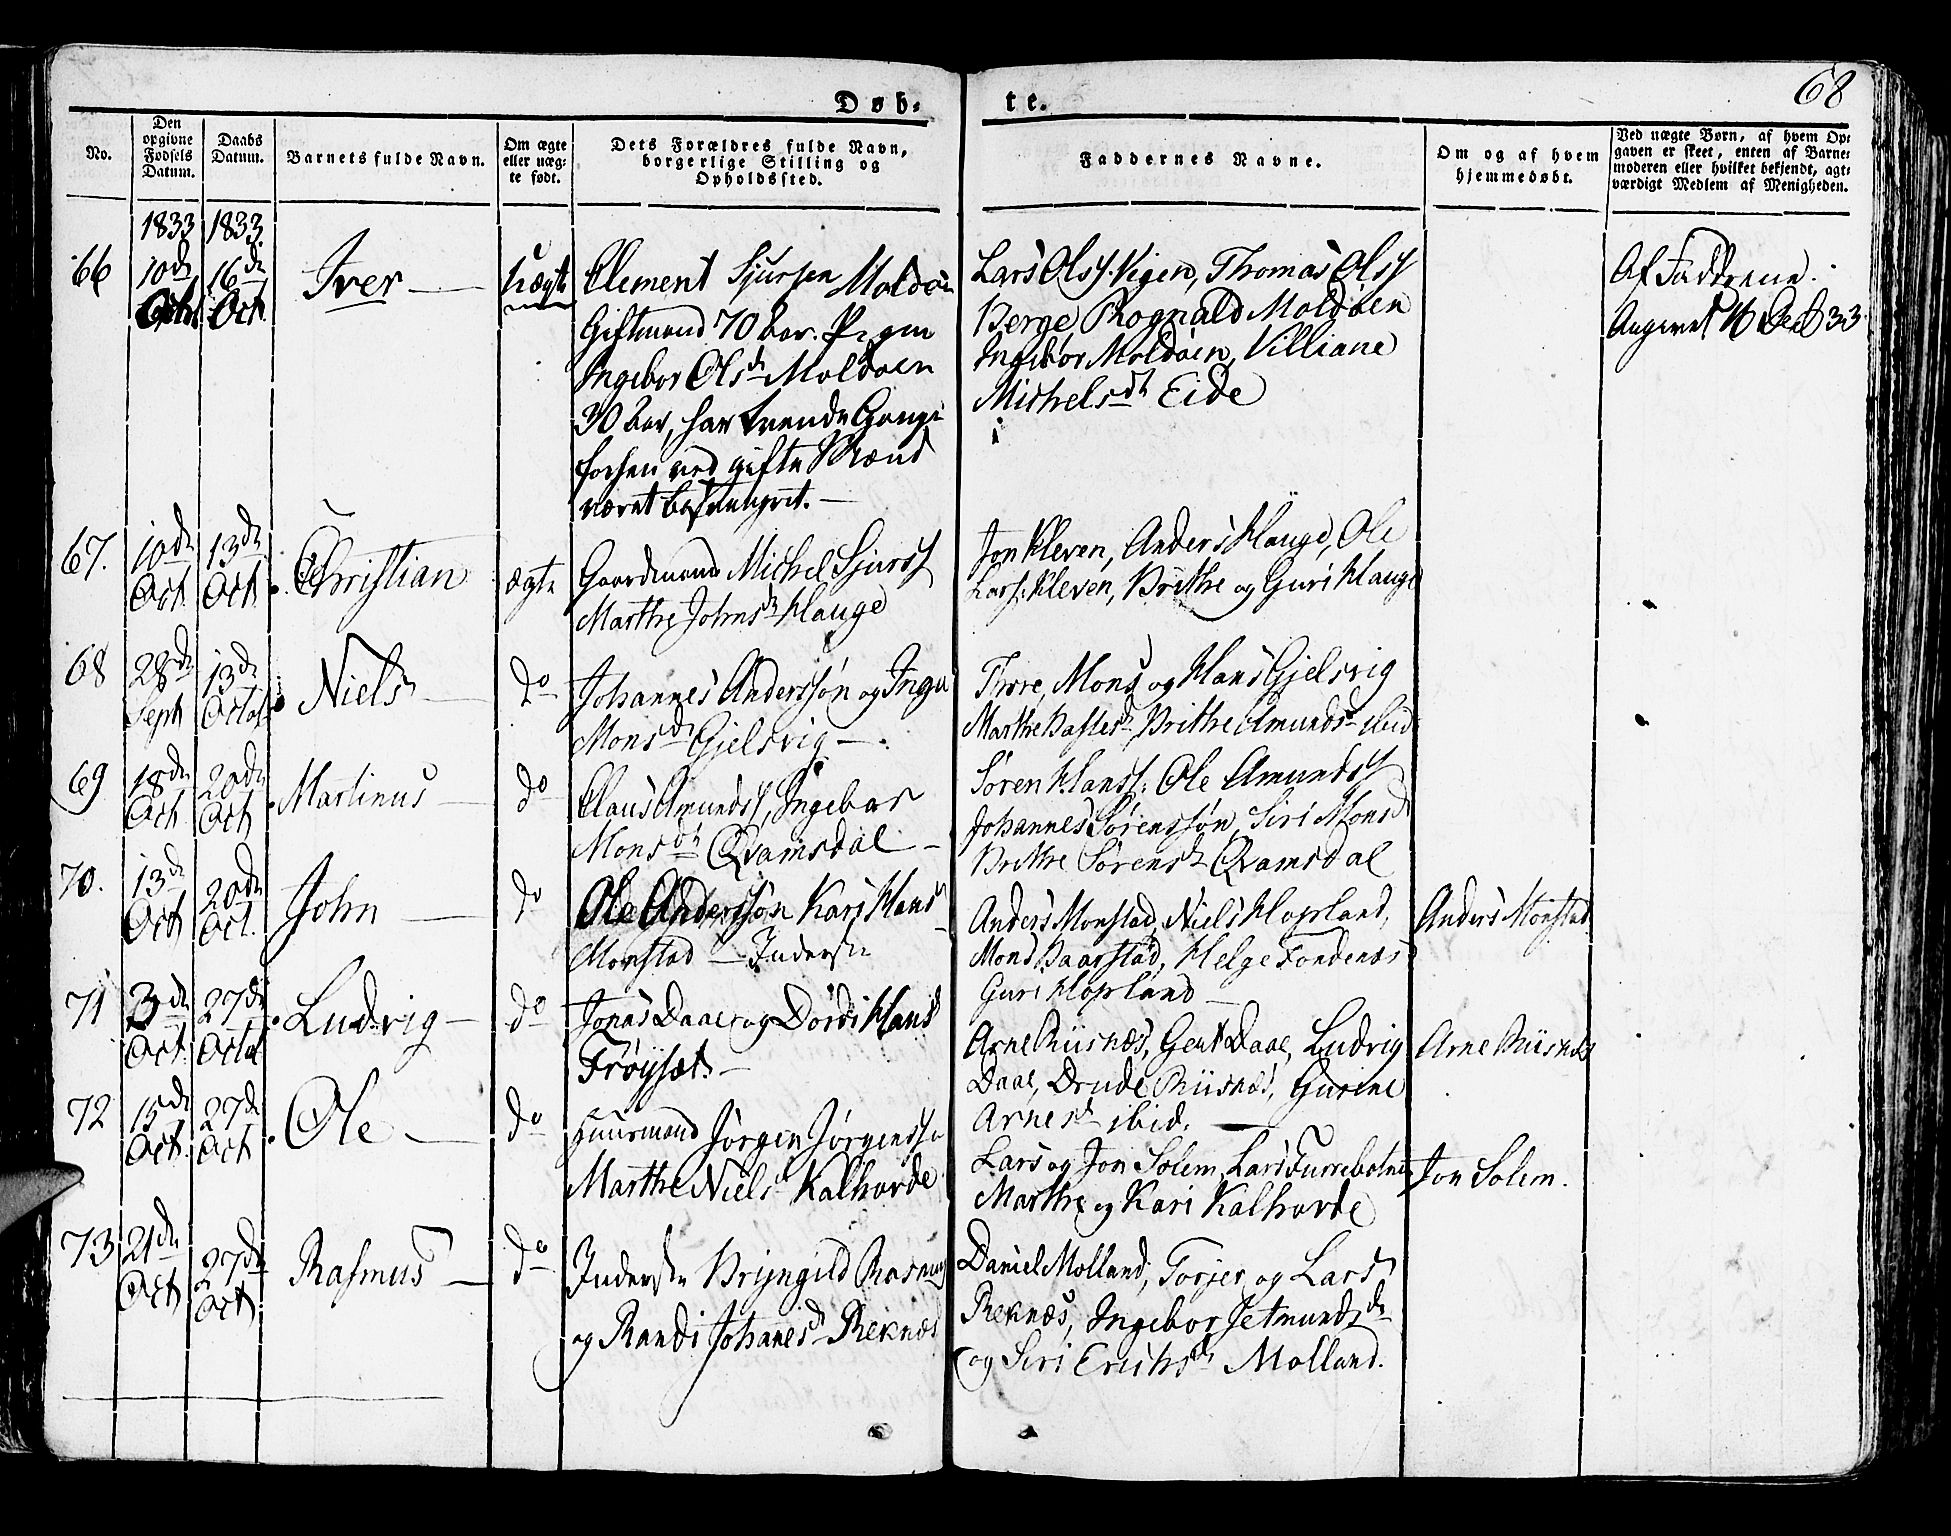 68
Døb-
te.
No.
Den opgivne Fødsels Datum.
Daabs Datum.
Barnets fulde Navn.
Om ægte eller uægte født.
Dets Forældres fulde Navn, borgerlige Stilling og Opholdssted.
Faddernes Navne.
Om og af hvem hjemmedøbt.
Ved uægte Børn, af hvem Opgaven er skeet, enten af Barnemoderen eller hvilket bekjendt, agtværdigt Medlem af Menigheden.
1833 1833.
66
10de Octr
16de Oct.
Iver
Uægte
Clement Sjursen Moldøen
Giftmand 70 aar. Pigen
Ingebor Olsdr Moldøen
30 Aar, har trende Gange
forhen ved gifte Mænd
været besvangret.
Lars Olss. Vigen, Thomas Olss
Berge Rognald Moldøen
Ingebor Moldøen, Villiane
Michelsdr Eide
Af Fadderne.
67.
10de Oct
13de Oct.
Christian
ægte
Gaardmand Michel Sjurss
Marthe Johnsdr Hauge
Jon Kleven, Anders Hauge, Ole
Larss. Kleven, Brithe og Guri Hauge
68
28de Sept
13de Octob
Niels
do
Johannes Andersøn og Inga
Monsdr Gjelsvig
Thore, Mons og Hans Gjelsvig
Brithe Amundsdr ibid
69
18de Oct.
20de Oct
Martinus
do
Claus Amundss, Ingebor
Monsdr Qvamsdal
Søren Hanss. Ole Amundss
Johannes Sørenssøn, Siri Monsdr
Brithe Sørensdr Qvamsdal
70.
13de Oct
20de Oct.
John
do
Ole Anderssøn Kari Hans
Monstad Inderste
Anders Monstad, Niels Hopland,
Mons Baarstad, Helge Fondenæs
Guri Hopland
Anders Monstad
71
3de Oct.
27de Octob
Ludvig
do
Jonas Daae og Dordi Hansd
Frøyset.
Arne Riisnæs, Gert Daae, Ludvig
Daae, Drude Riisnæs, Gurine
Arnesdr ibid.
Arne Riisnæs
72
15de Oct.
27de Oct
Ole
do
Huusmand Jørgen Jørgenss.
Marthe Nielsd Kalhovde
Lars og Jon Solem, Lars Furrebotne
Marthe og Kari Kalhovde
Jon Solem.
73
21de Oct
27de Oct
Rasmus
do
Inderste Brÿngild Rasmus
og Randi Johanesdr Reknæs
Daniel Molland, Torjer og Lars
Reknæs, Ingebor Jetmundsdr
og Siri Erichsdr Molland.